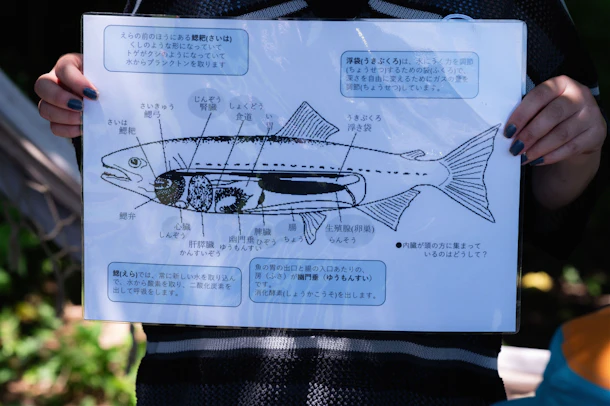 えらの前のほうにある鰓耙(さいは)
くしのような形になっていて
トゲがクシのようになっていて
水からプランクトンを取ります
浮袋(うきぶくろ)は、水にうく力を調節
(ちょうせつ)するための袋(ふくろ)で、
深さを自由に変えるためにガスの量を
調節(ちょうせつ)しています。
さいは
鰓耙
さいきゅう
鰓弓
じんぞう
腎臓
しょくどう
食道
い
胃
うきぶくろ
浮き袋
鰓弁
心臓
しんぞう
肝膵臓
かんすいぞう
幽門垂
ゆうもんすい
脾臓
ひぞう
腸
ちょう
生殖腺(卵巣)
らんそう
●内臓が頭の方に集まって
いるのはどうして?
鰓(えら)では、常に新しい水を取り込ん
で、水から酸素を取り、二酸化炭素を
出して呼吸をします。
魚の胃の出口と腸の入口あたりの、
房(ふさ)が幽門垂(ゆうもんすい)
です。
消化酵素(しょうかこうそ)を出します。